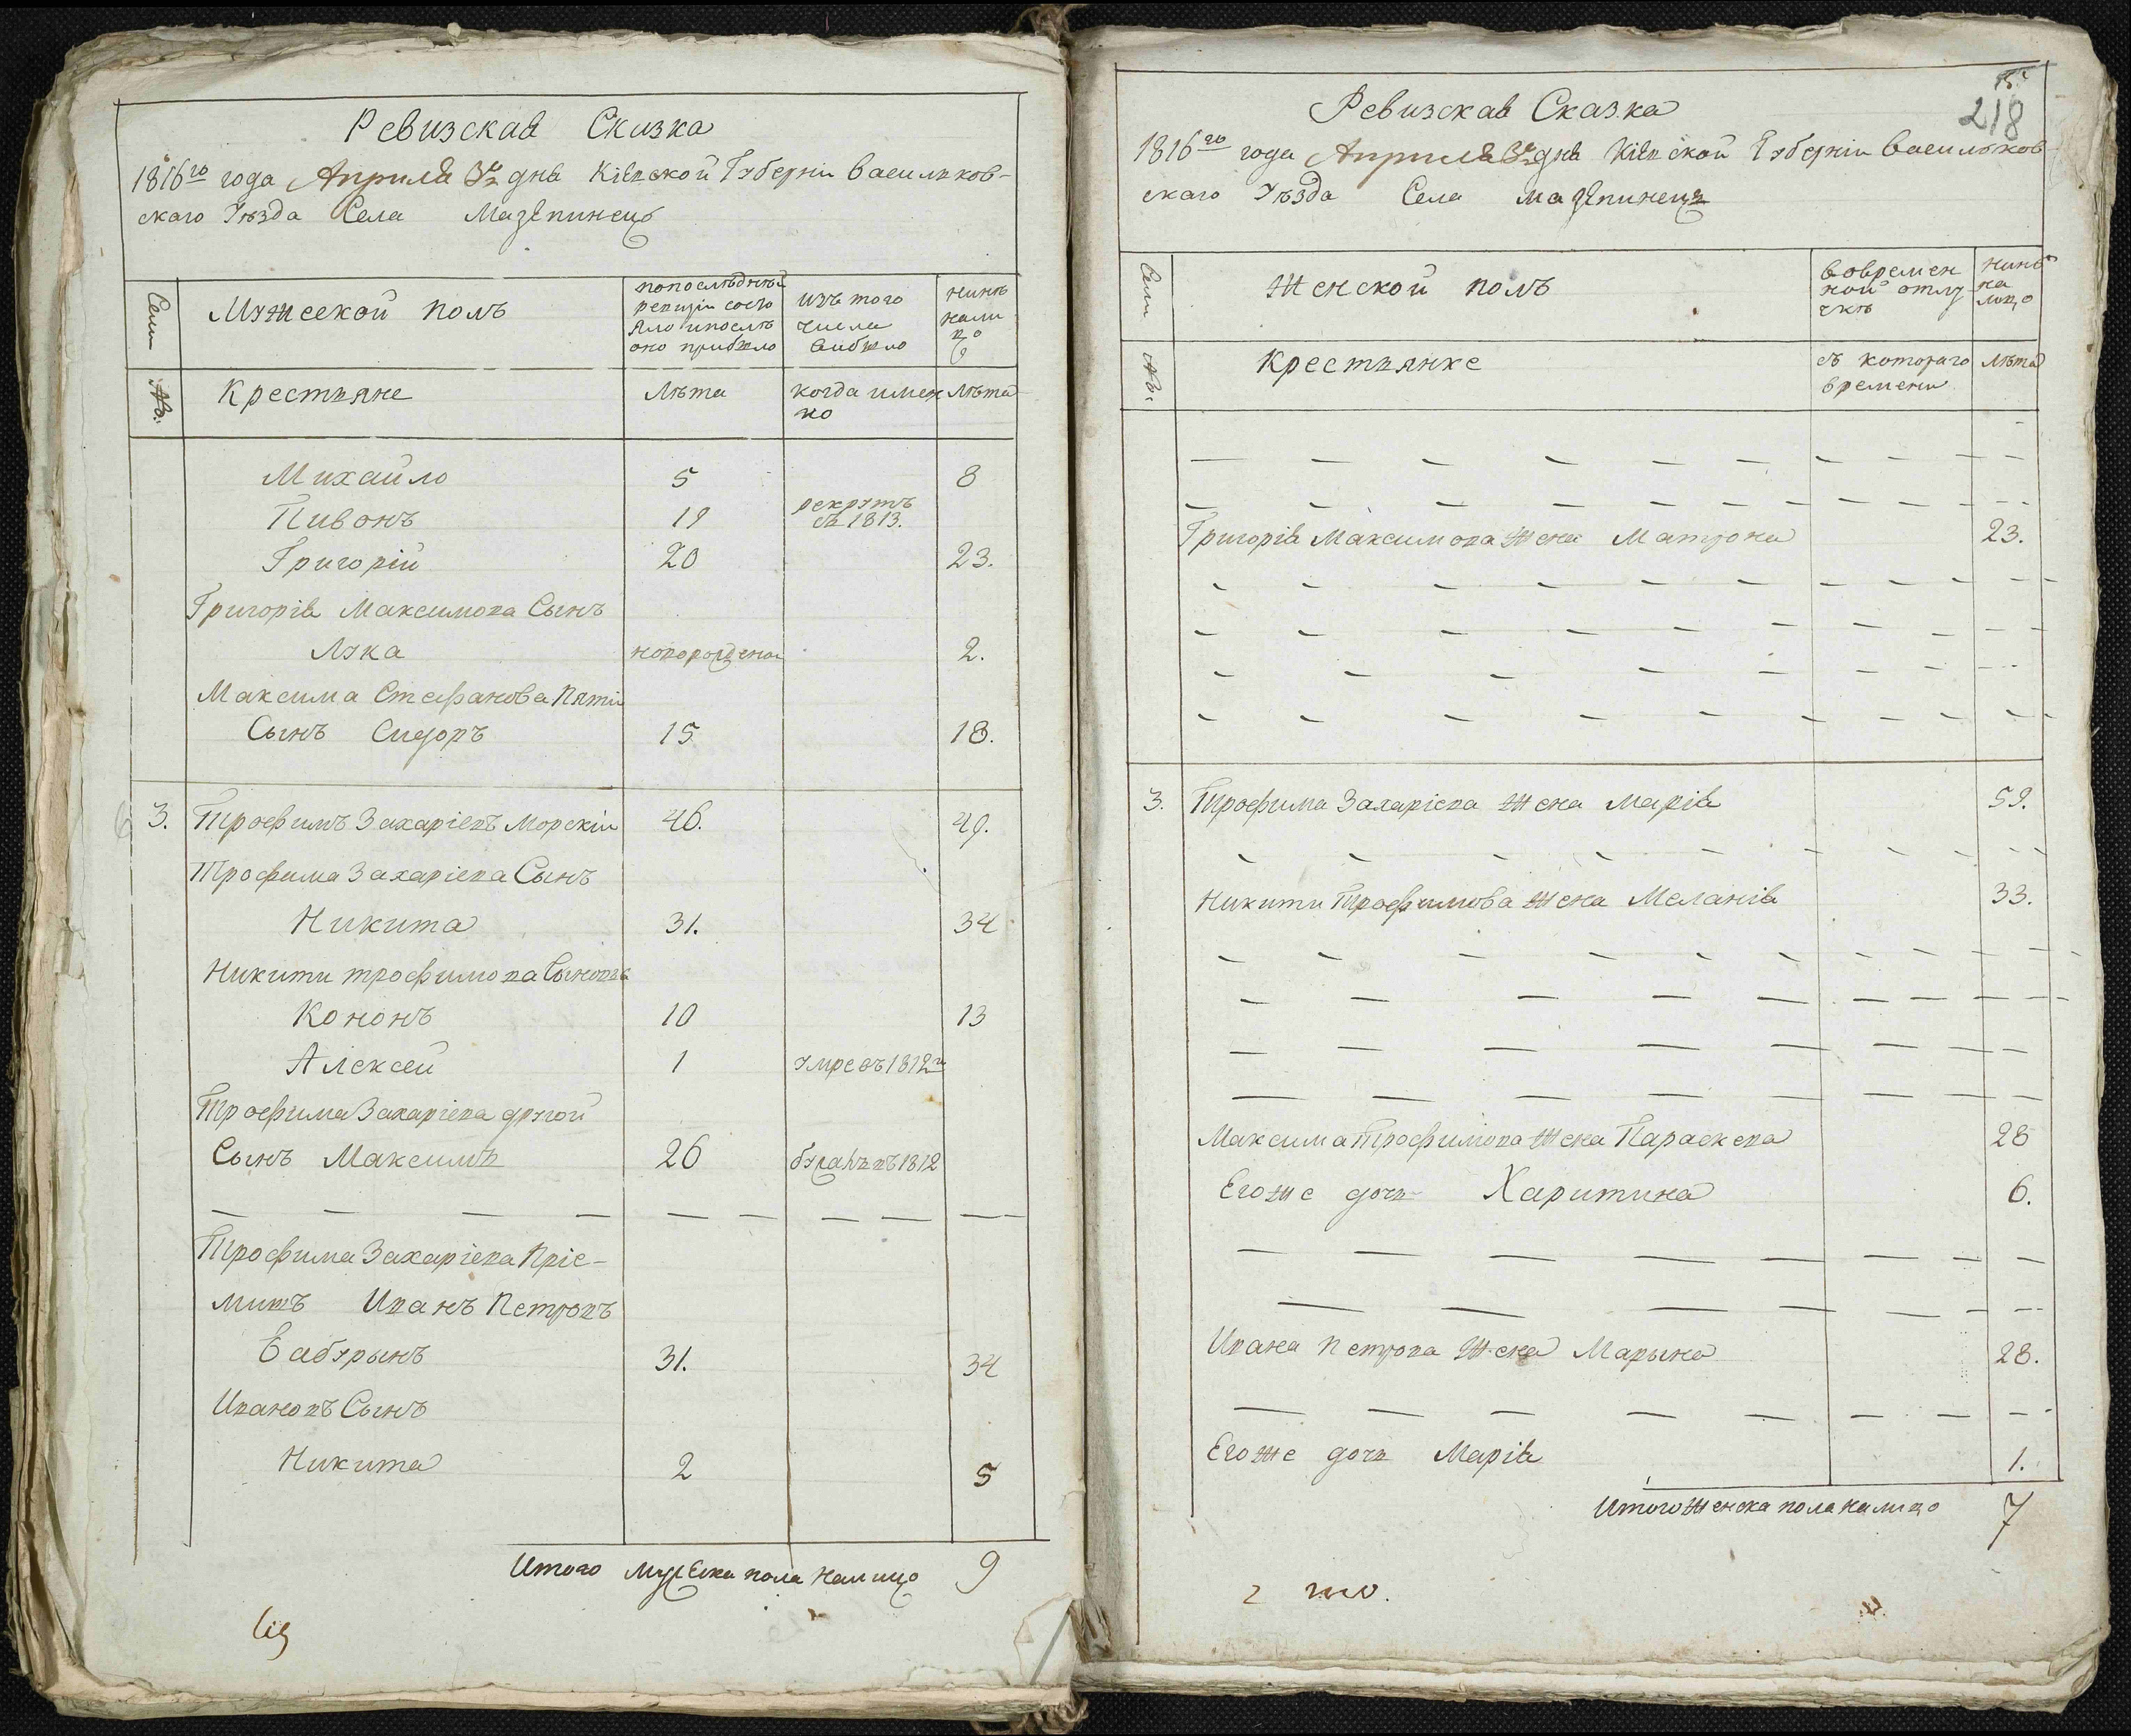 Ревизская Сказка
1816го года Апреля дня Кіевской Губерніи Васильков-
скаго Уѣзда Села Мазепинецъ
Семьи
Мужеской полъ
попослѣднѣй
ревизіи состо
яло ипослѣ
оно прибыло
изъ того
числа
выбыло
нинѣ
нали
цо
№:
Крестьяне
Лѣта
когда имен
но
Лѣта
Михайло 5 8
Пивонъ 19 рекрутъ
въ 1813.
Григорій 20 23.
Григорія Максимова Сынъ
Лука новорожденой 2.
Максима Стефанова Пятій
Сынъ Сидоръ 15 18.
3. Трофимъ Захаріевъ Морскій 46. 49.
Трофима Захаріева Сынъ
Никита 31. 34
Никити трофимова Сыновья
Кононъ 10 13
Алексей 1 умре въ 1812м
Трофима Захаріева другой
Сынъ Максимъ 26 въ 1812
Трофима Захаріева Пріе-
мишъ Иванъ Петровъ
31. 34
Ивановъ Сынъ
Никита 2 5
Итого мужеска пола налицо 9
218
Ревизская Сказка
1816го года Апреля дня Кіевской Губерніи Васильков
скаго Уѣзда Села мазепинецъ
Семьи
Женской полъ
Вовремен
ной отлу
чкѣ
нинѣ
на
лицо
№:
Крестьянке
съ котораго
времени
Лѣта
Григорія Максимова жена Матрона 23.
3. Трофима Захаріева жена Марія 59.
Никити Трофимова жена Меланія 33.
Максима Трофимова жена Параскева 28
Егоже дочь Харитина 6.
Ивана Петрова жена Марына 28.
Егоже дочь Марія 1.
Итого женска пола налицо 7